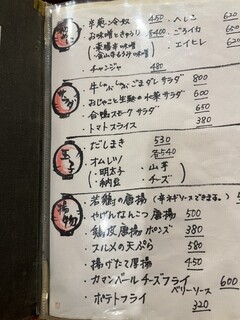 半丸冷奴 450
お味噌ときゅうり 各400
・チャンジャ 480
・ヘレン 620
・ごろイカ 650
・エイヒレ 620
サラダ
・牛しゃぶしゃぶごまダレサラダ 800
・おじゃこと生麩の水菜サラダ 600
・合鴨スモークサラダ 650
・トマトスライス 380
玉子
・だしまき 530
・オムレツ 各540
(・明太子 ・山芋
・納豆 ・チーズ)
揚物
・若鶏の唐揚 (辛ネギソースできます。)
・やげんなんこつ唐揚 500
・鶏皮唐揚ポンズ 380
・スルメの天ぷら 580
・揚げたて厚揚 450
・カマンベールチーズフライ 600
ベリーソース
・ポテトフライ 320